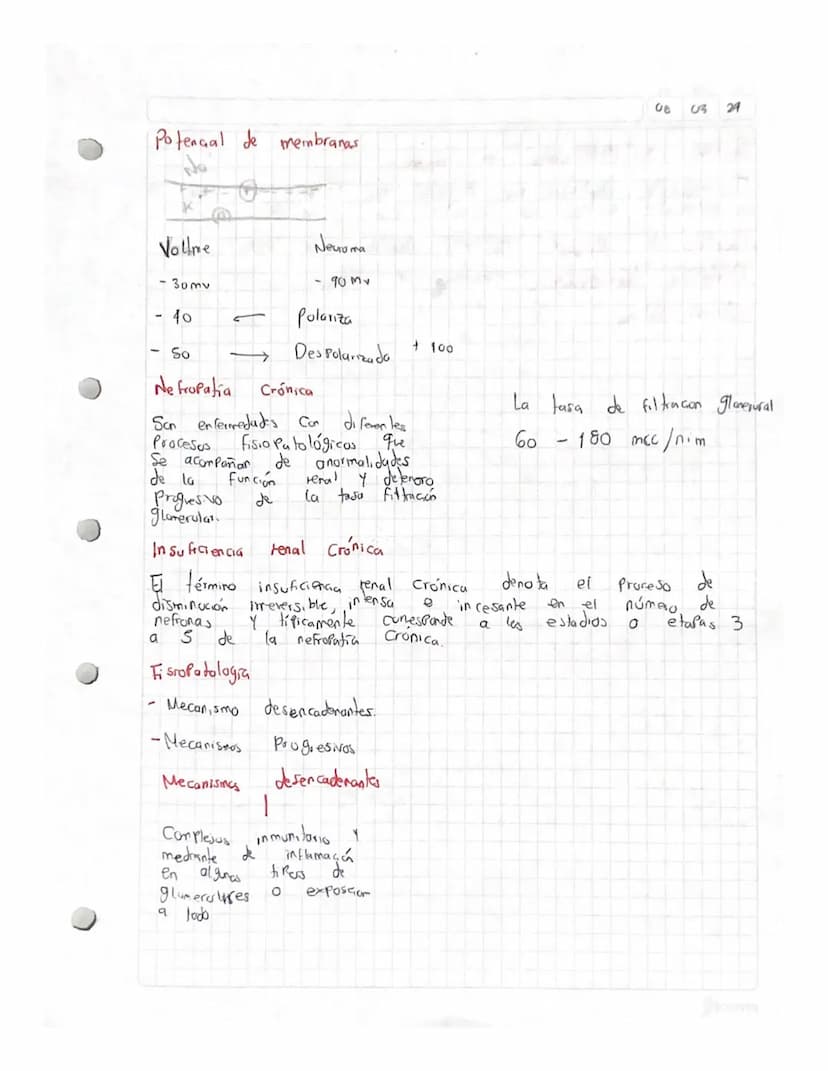 08 03 24
Potencial de membranas
Na
K
Voltme Neuroma
- 30mv - 90 mv
- 40 ← Polariza
- 50 → Despolarizada + 100
Nefropatía Crónica
Son enfermedades con diferentes
Procesos fisiopatológicos que
Se acompañan de anormalidades
de la función renal y deterioro
Progresivo de la tasa filtración
glomerular.
La tasa de filtracion glomerural
60 - 180 mcc/nim
Insuficiencia renal Crónica
El término insuficiencia renal Crónica denota el Proceso de
disminución irreversible, intensa e incesante en el número de
nefronas y típicamente corresponde a los estadios o etapas 3
a 5 de la nefropatía Crónica.
Fisiopatologia
- Mecanismo desencadenantes.
- Mecanismos Progresivos
Mecanismos desencadenantes
Complejos inmunitario y
mediante de inflamación
en algunos tipos de
o exposicion
a